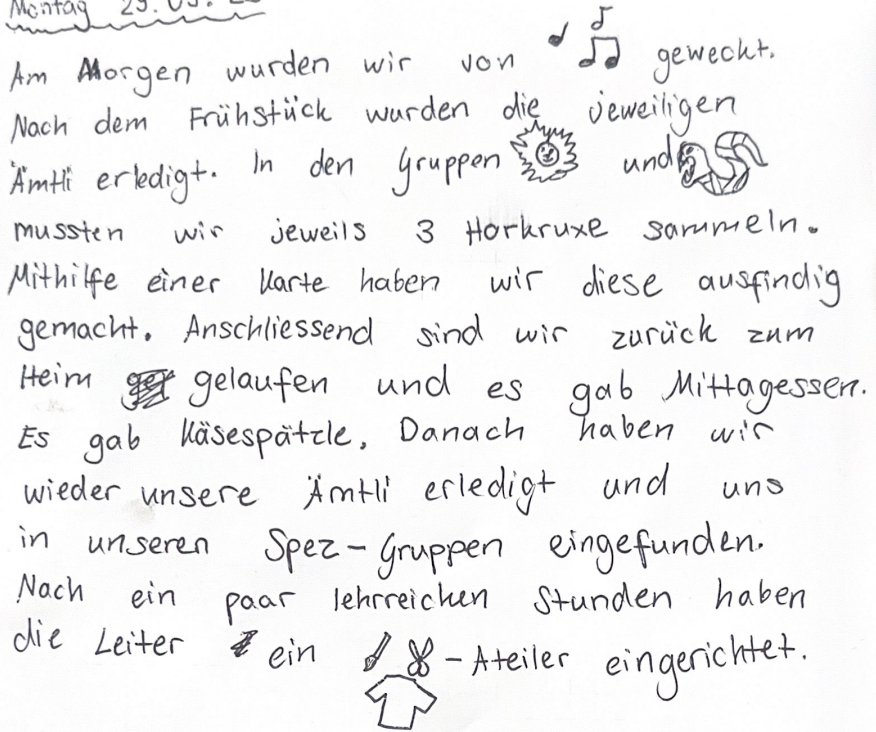 Montag
Am Morgen wurden wir von geweckt.
Nach dem Frühstück wurden die jeweiligen
Ämtli erledigt. In den Gruppen und
mussten wir jeweils 3 Horkruxe sammeln.
Mithilfe einer Karte haben wir diese ausfindig
gemacht. Anschliessend sind wir zurück zum
Heim gelaufen und es gab Mittagessen.
Es gab Käsespätzle. Danach haben wir
wieder unsere Ämtli erledigt und uns
in unseren Spez-Gruppen eingefunden.
Nach ein paar lehrreichen Stunden haben
die Leiter ein -Ateiler eingerichtet.